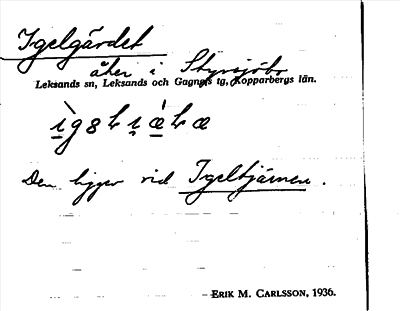 Igelgärdet
åker i Styrsjöbo
Leksands sn, Leksands och Gagnefs tg, Kopparbergs län.
Den ligger vid Igeltjärnen.
ERIK M. CARLSSON, 1936.